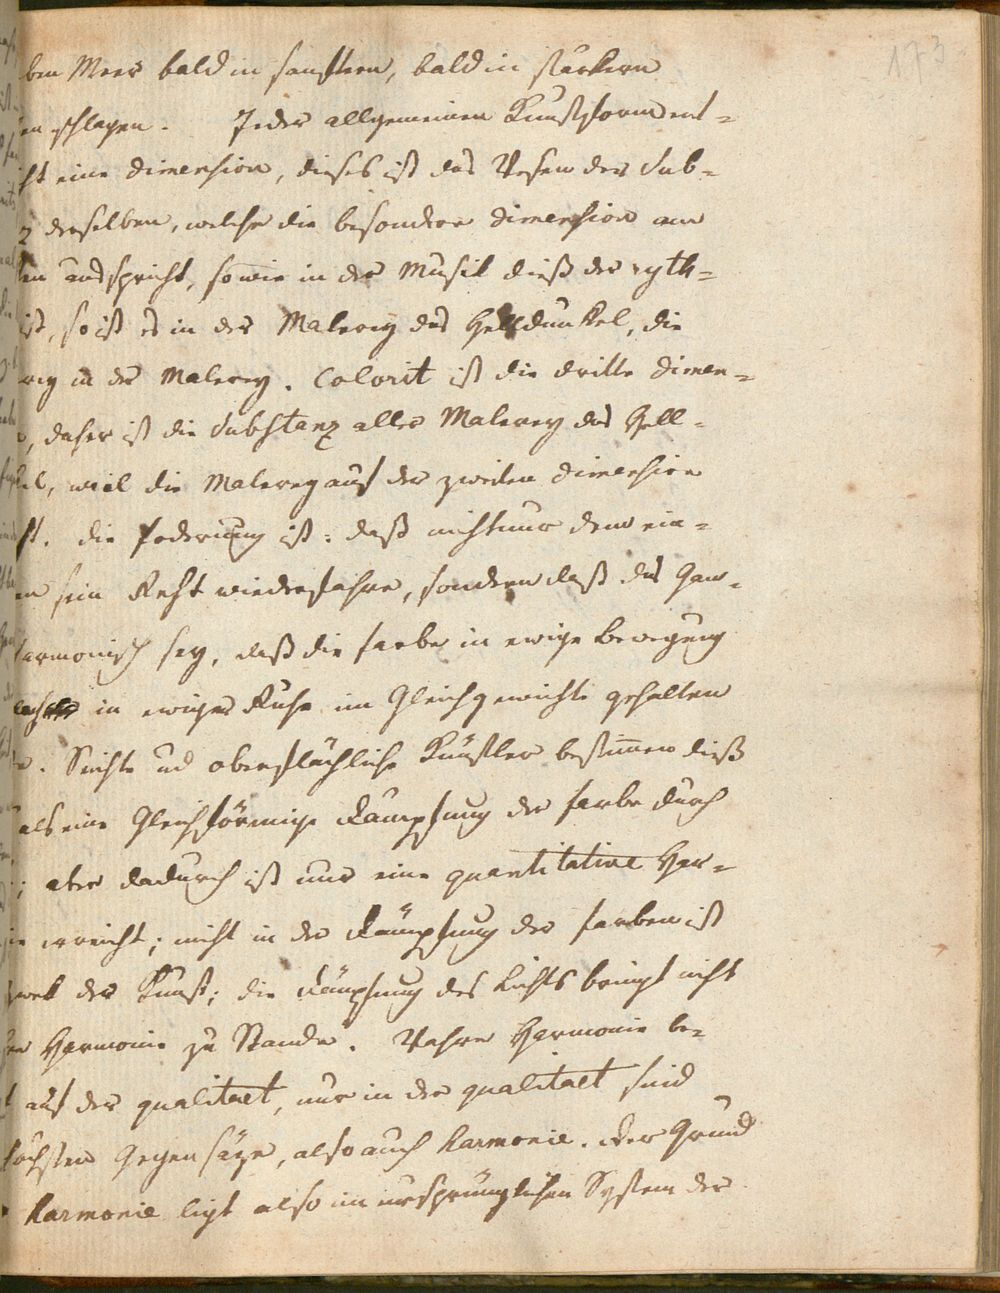 173
ben Meer bald in sanftern, bald in starkern
en schlagen. Jeder allgemeinen Kunstform ent=
cht eine Dimension, dieses ist das Wesen der Sub=
z derselben, welche die besondere Dimension am
ten ausspricht, sowie in der Musik dieß der ryth=
ist, so ist es in der Malerey das Helldunkel, die
rey in der Malerey. Colorit ist die dritte Dimen=
n, daher ist die Substanz aller Malerey das Hell=
kel, weil die Malerey auf der zweiten Dimension
ht. die Foderung ist: daß nicht nur dem ein=
en sein Recht wiederfahre, sondern daß das Gan=
harmonisch sey, daß die Farbe in ewige Bewegung
in ewiger Ruhe im Gleichgewichte gehalten
e. Seichte und oberflächliche Künstler bestimmen dieß
als eine Gleichförmige Dämpfung der Farbe durch
; aber dadurch ist nur eine quantitative Har=
ie erreicht; nicht in der Dämpfung der Farben ist
zwek der Kunst; die Dämpfung des Lichts bringt nicht
re Harmonie zu Stande. Wahre Harmonie be=
t auf der qualitaet, nur in der qualitaet sind
höchsten Gegensäze, also auch Harmonie. Der Grund
Harmonie ligt also im ursprünglichen System der